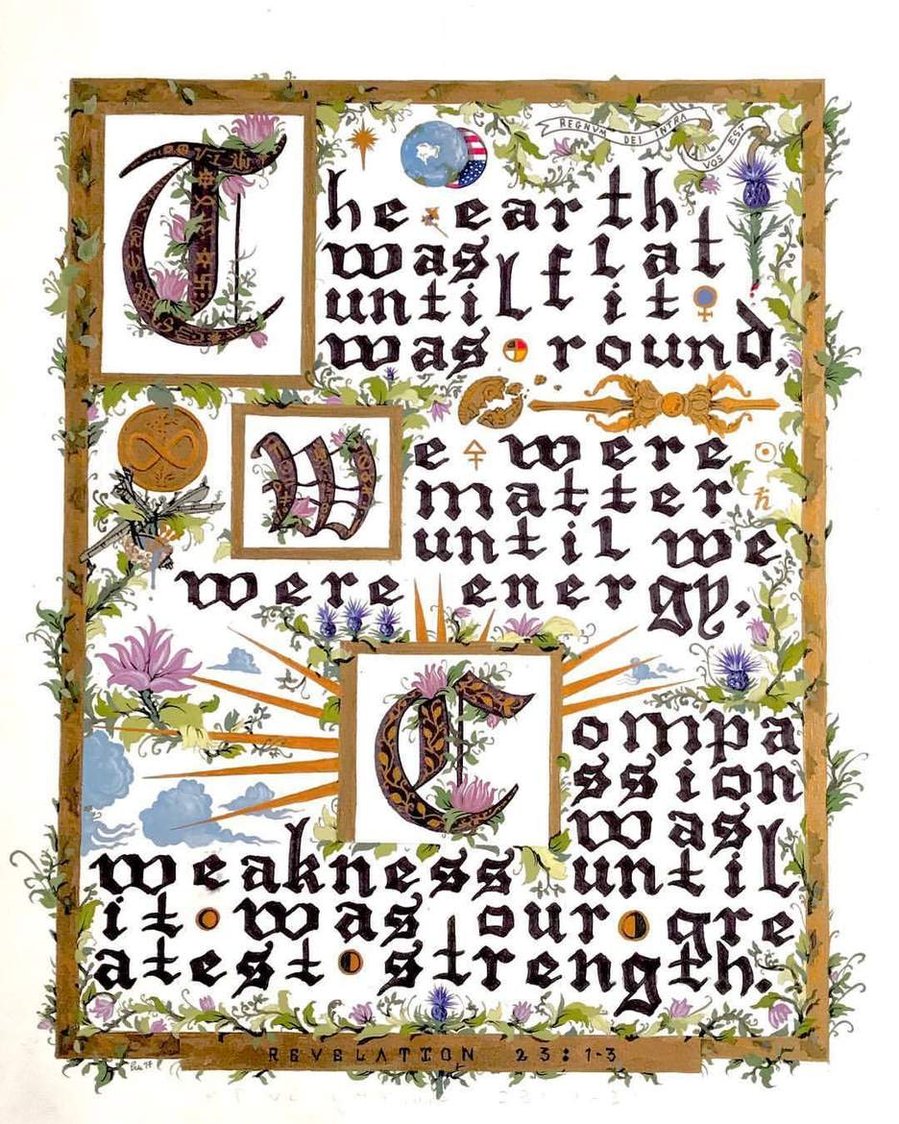 REGNVM DEI INTRA VOS EST
The earth
was flat
until it
was round,
We were
matter
until we
were energy.
Compa
ssion
was
weakness until
it was our gre
atest strength.
REVELATION 23:1-3